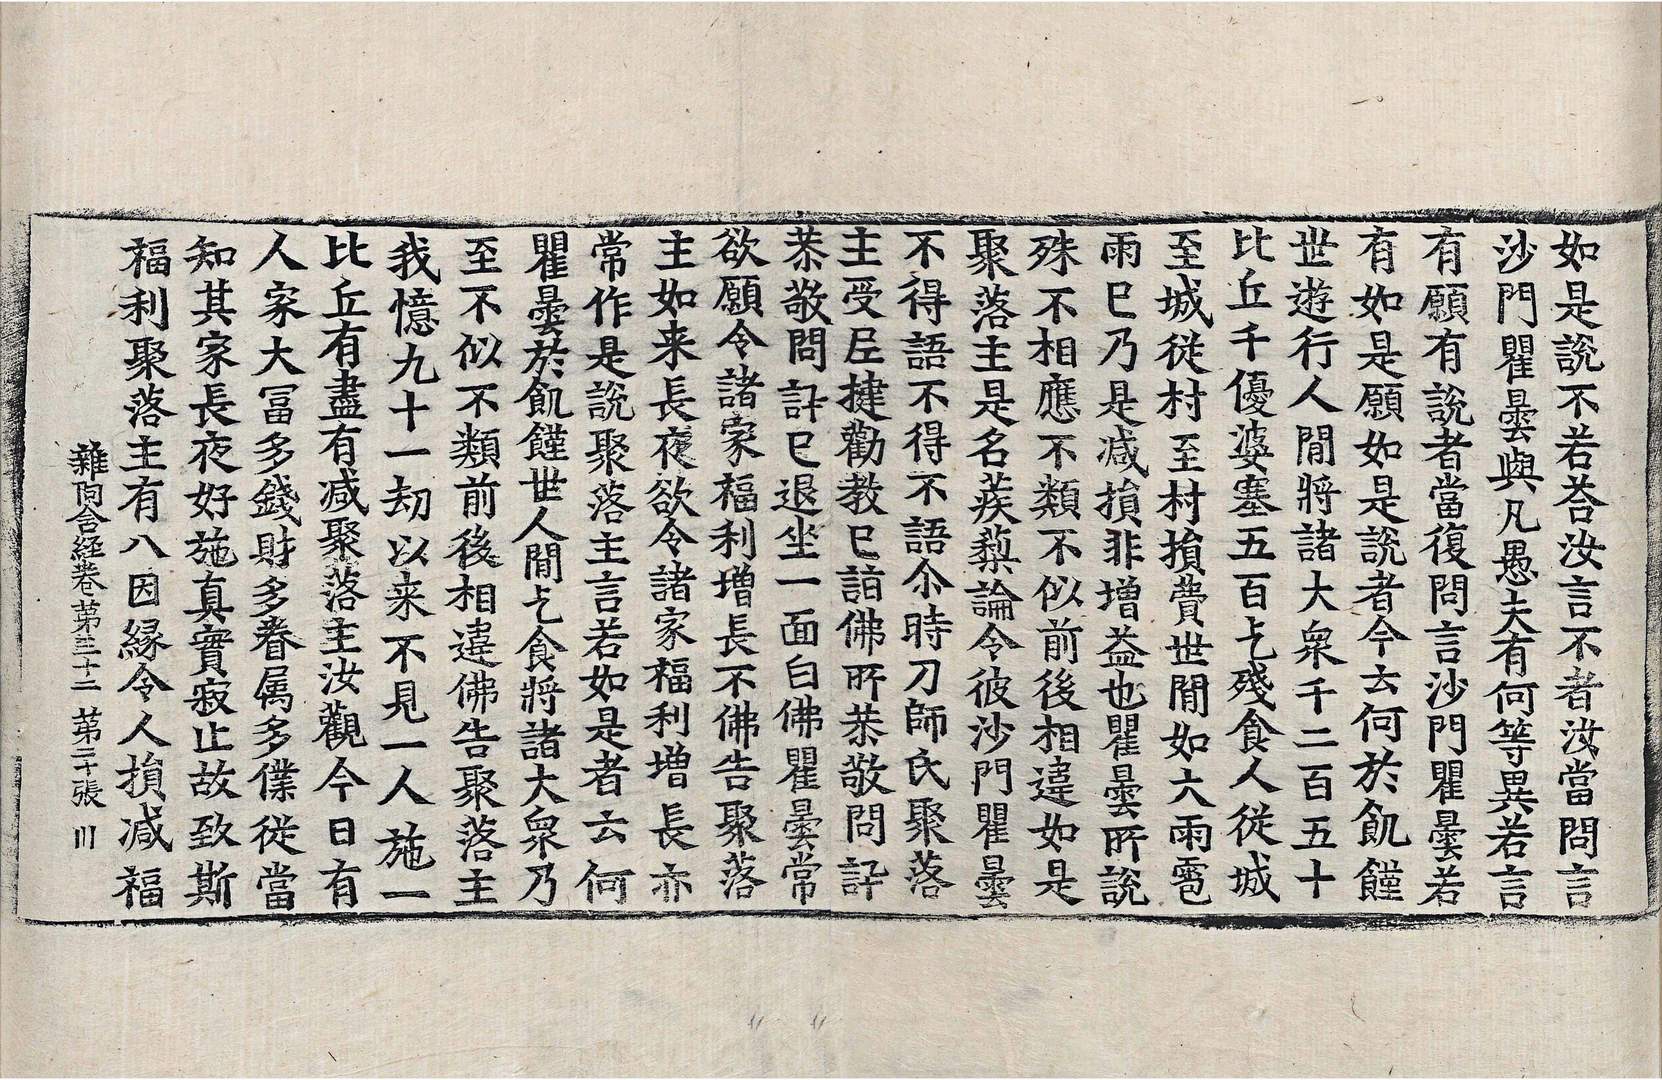 如是說不若荅汝言不者汝當問言
沙門瞿曇與凡愚夫有何等異若言
有願有說者當復問言沙門瞿曇若
有如是願如是說者今云何於飢饉
世遊行人間將諸大衆千二百五十
比丘千優婆塞五百乞殘食人從城
至城從村至村損費世間如大雨雹
雨已乃是减損非增益也瞿曇所說
殊不相應不類不似前後相違如是
聚落主是名蒺䔧論令彼沙門瞿曇
不得語不得不語尒時刀師氏聚落
主受尼揵勸教已詣佛所恭敬問訊
恭敬問訊已退坐一面白佛瞿曇常
欲願令諸家福利增長不佛告聚落
主如来長夜欲令諸家福利增長亦
常作是說聚落主言若如是者云何
瞿曇於飢饉世人間乞食將諸大衆乃
至不似不類前後相違佛告聚落主
我憶九十一劫以来不見一人施一
比丘有盡有减聚落主汝觀今日有
人家大冨多錢財多眷属多僕從當
知其家長夜好施真實寂止故致斯
福利聚落主有八因緣令人損减福
雜阿含経卷第三十二 第三十張 川